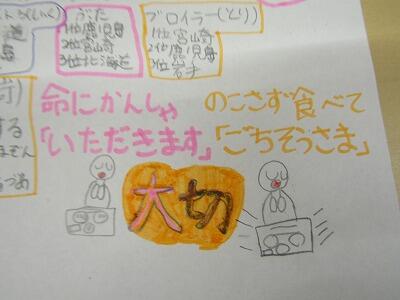 ぶた
1位鹿児島
2位宮崎
3位北海道
ブロイラー(とり)
1位宮崎
2位鹿児島
3位岩手
命にかんしゃ
「いただきます」
のこさず食べて
「ごちそうさま」
大切